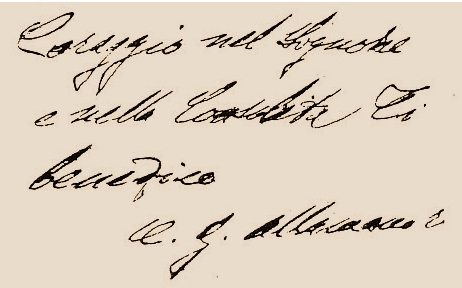 Coraggio nel Signore
e nella Consolata Ti
benedico
C. G. Allamano